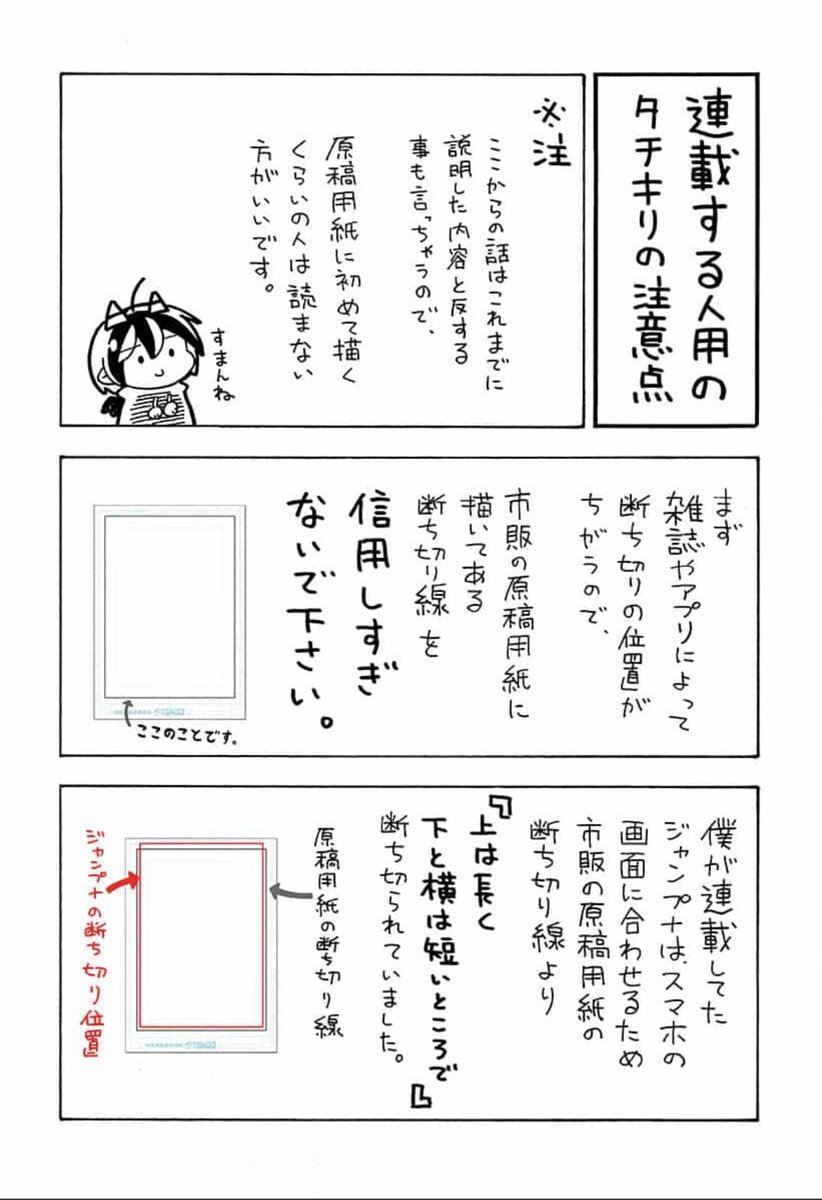 連載する人用の
タチキリの注意点
※注
ここからの話はこれまでに
説明した内容と反する
事も言っちゃうので、
原稿用紙に初めて描く
くらいの人は読まない
方がいいです。
すまんね
まず
雑誌やアプリによって
断ち切りの位置が
ちがうので、
市販の原稿用紙に
描いてある
断ち切り線を
信用しすぎ
ないで下さい。
ここのことです。
僕が連載してた
ジャンプ+は、スマホの
画面に合わせるため
市販の原稿用紙の
断ち切り線より
『上は長く
下と横は短いところで』
断ち切られていました。
原稿用紙の断ち切り線
ジャンプ+の断ち切り位置